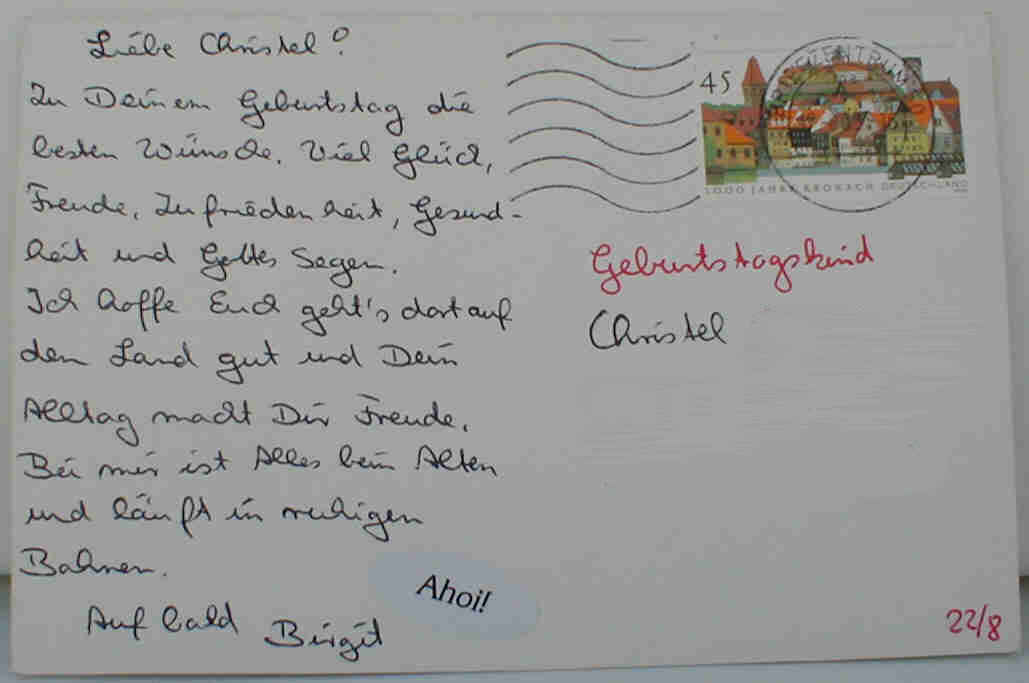 Liebe Christel!
Zu Deinem Geburtstag die
besten Wünsche. Viel Glück,
Freude, Zufriedenheit, Gesund-
heit und Gottes Segen.
Ich hoffe Euch geht's dort auf
dem Land gut und Dein
Alltag macht Dir Freude.
Bei mir ist Alles beim Alten
und läuft in ruhigen
Bahnen.
Auf bald Birgit
Ahoi!
45
1000 JAHRE KRONACH DEUTSCHLAND
BRIEFZENTRUM
Geburtstagskind
Christel
22/8